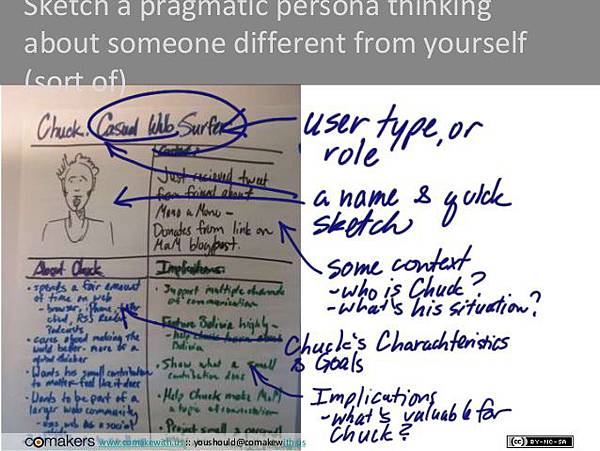 Sketch a pragmatic persona thinking
about someone different from yourself
(sort of)
Chuck. Casual Web Surfer
Context:
Just recieved tweet
from friend about
Mano a Mano -
Donates from link on
MaM blogpost.
About Chuck
• spends a fair amount
of time on web
- browser, phone,
chat, RSS Reader
Podcasts
• cares about making the
world better - more of a
global thinker
• Wants his small contribution
to matter - feel like it does
• Wants to be part of a
larger web community
- uses web as a social
Implications:
• Support multiple channels
of communication
• Feature Bolivia highly -
- help chuck learn about
Bolivia
• Show what a small
contribution does
• Help Chuck make MaM
a topic of conversation
• Project small & personal
user type, or
role
a name & quick
sketch
some context
- who is Chuck?
- what's his situation?
Chuck's Charachteristics
& Goals
Implications
- what's valuable for
Chuck?
comakers
www.comakewith.us :: youshould@comakewith.us
cc BY-NC-SA